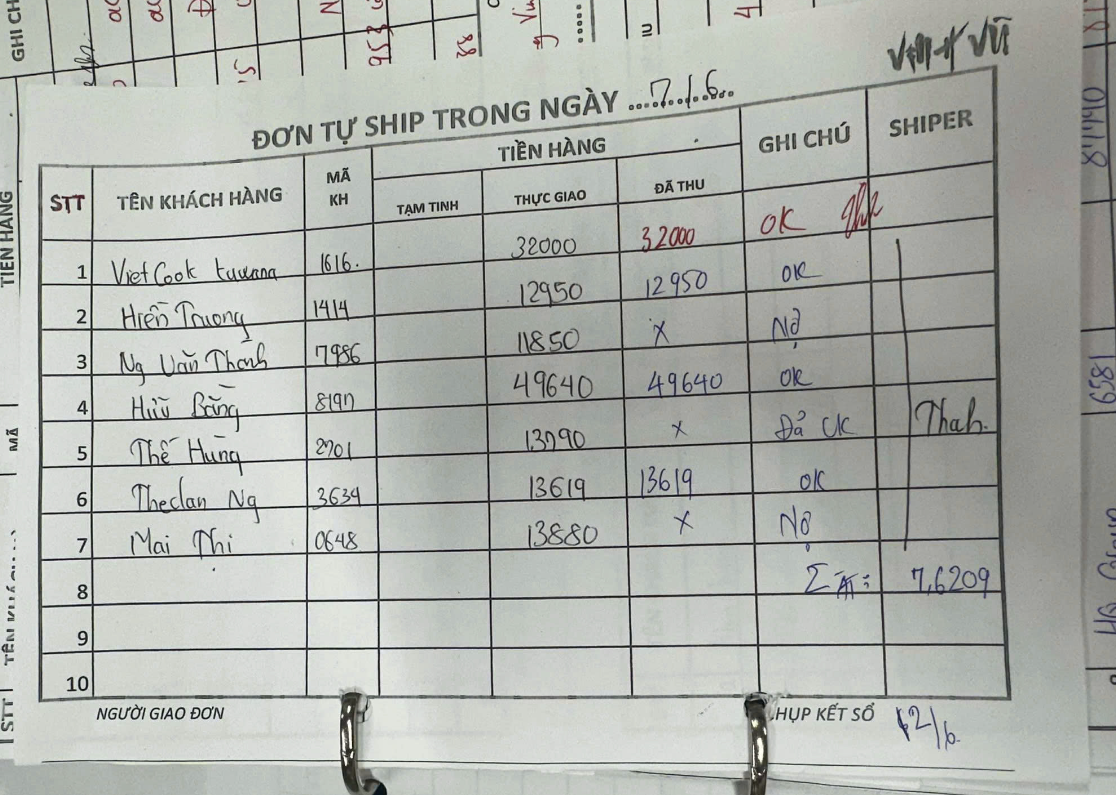 GHI CH
TIỀN HÀNG
MÃ
STT
953
88
VŨ
ĐƠN TỰ SHIP TRONG NGÀY ...7./.6...
STT TÊN KHÁCH HÀNG MÃ KH TIỀN HÀNG GHI CHÚ SHIPER
TẠM TINH THỰC GIAO ĐÃ THU
1 VietCook 1616. 32000 32000 OK
2 Hiền Truong 1414 12950 12950 OK
3 Ng Văn Thành 7986 11850 X Nợ
4 Hữu Bằng 8197 49640 49640 OK
5 Thế Hùng 2701 13790 X Đả CK Thah.
6 Theclan Ng 3634 13619 13619 OK
7 Mai Thị 0648 13880 X Nợ
8 Σ : 7,6209
9
10
NGƯỜI GIAO ĐƠN HỤP KẾT SỔ 12/6.
6581